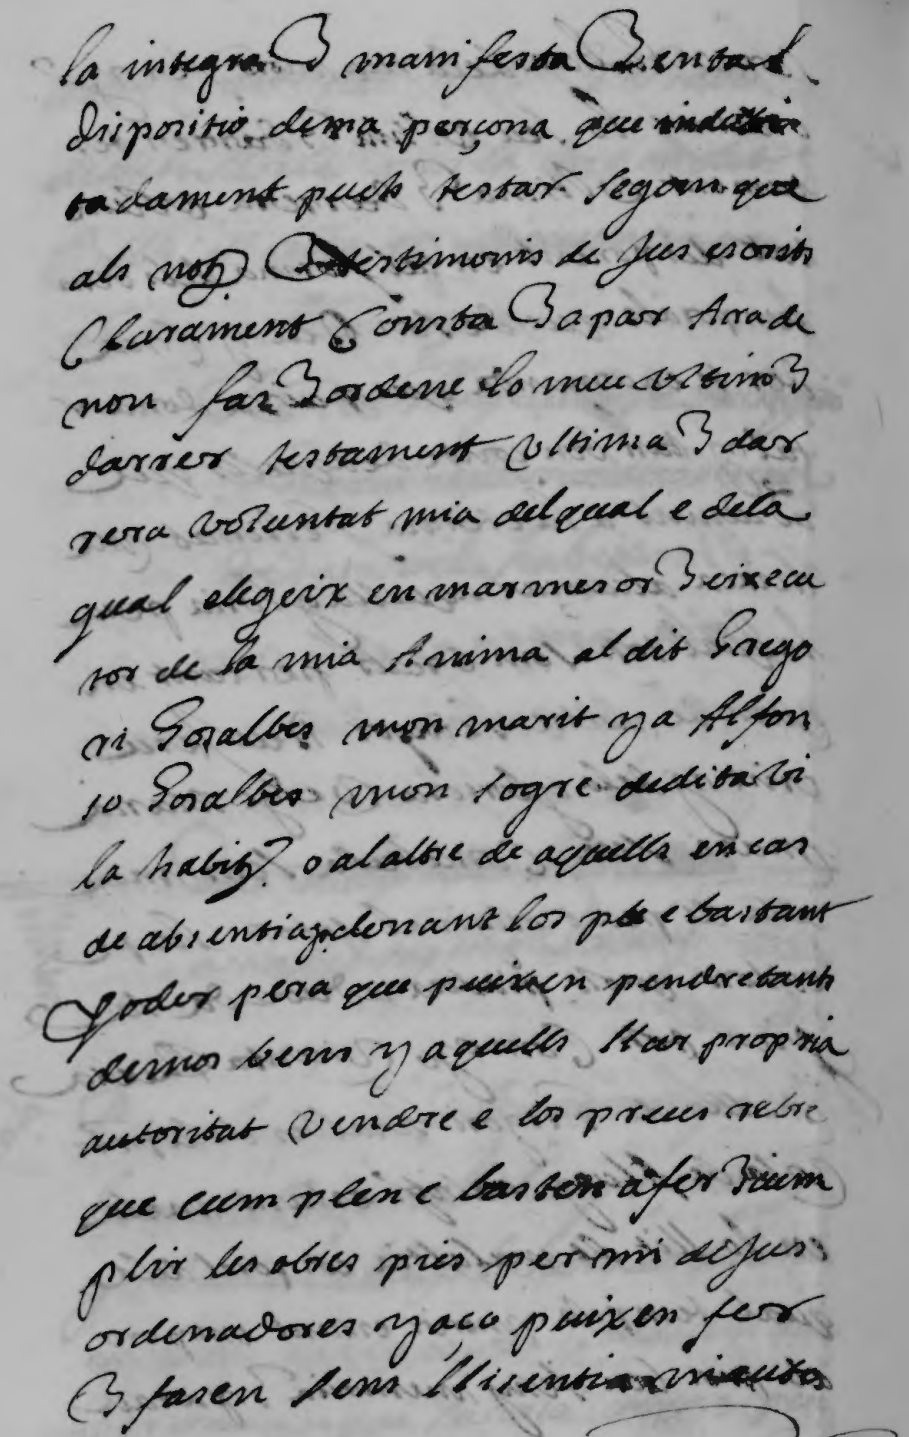 la integra E manifesta E en tal
dispositio de ma persona que indubi
tadament puch testar segons que
als not E testimonis de jus escrits
Clarament Consta E apar Ara de
nou fas E ordene lo meu ultim E
darrer testament ultima E dar
rera voluntat mia del qual e dela
qual elegeix en marmesor E eixecu
tor de la mia Anima al dit Grego
ri Gosalbes mon marit y a Alfon
so Gosalbes mon sogre de dita vi
la habit o al altre de aquells en cas
de absentia donant los ple e bastant
Poder pera que puixen pendre tants
de mos bens y aquells llur propria
autoritat vendre e los preus rebre
que cumplen e basten a fer E cum
plir les obres pies per mi de jus
ordenadores y aço puixen fer
E fasen sens llisentia ni auto